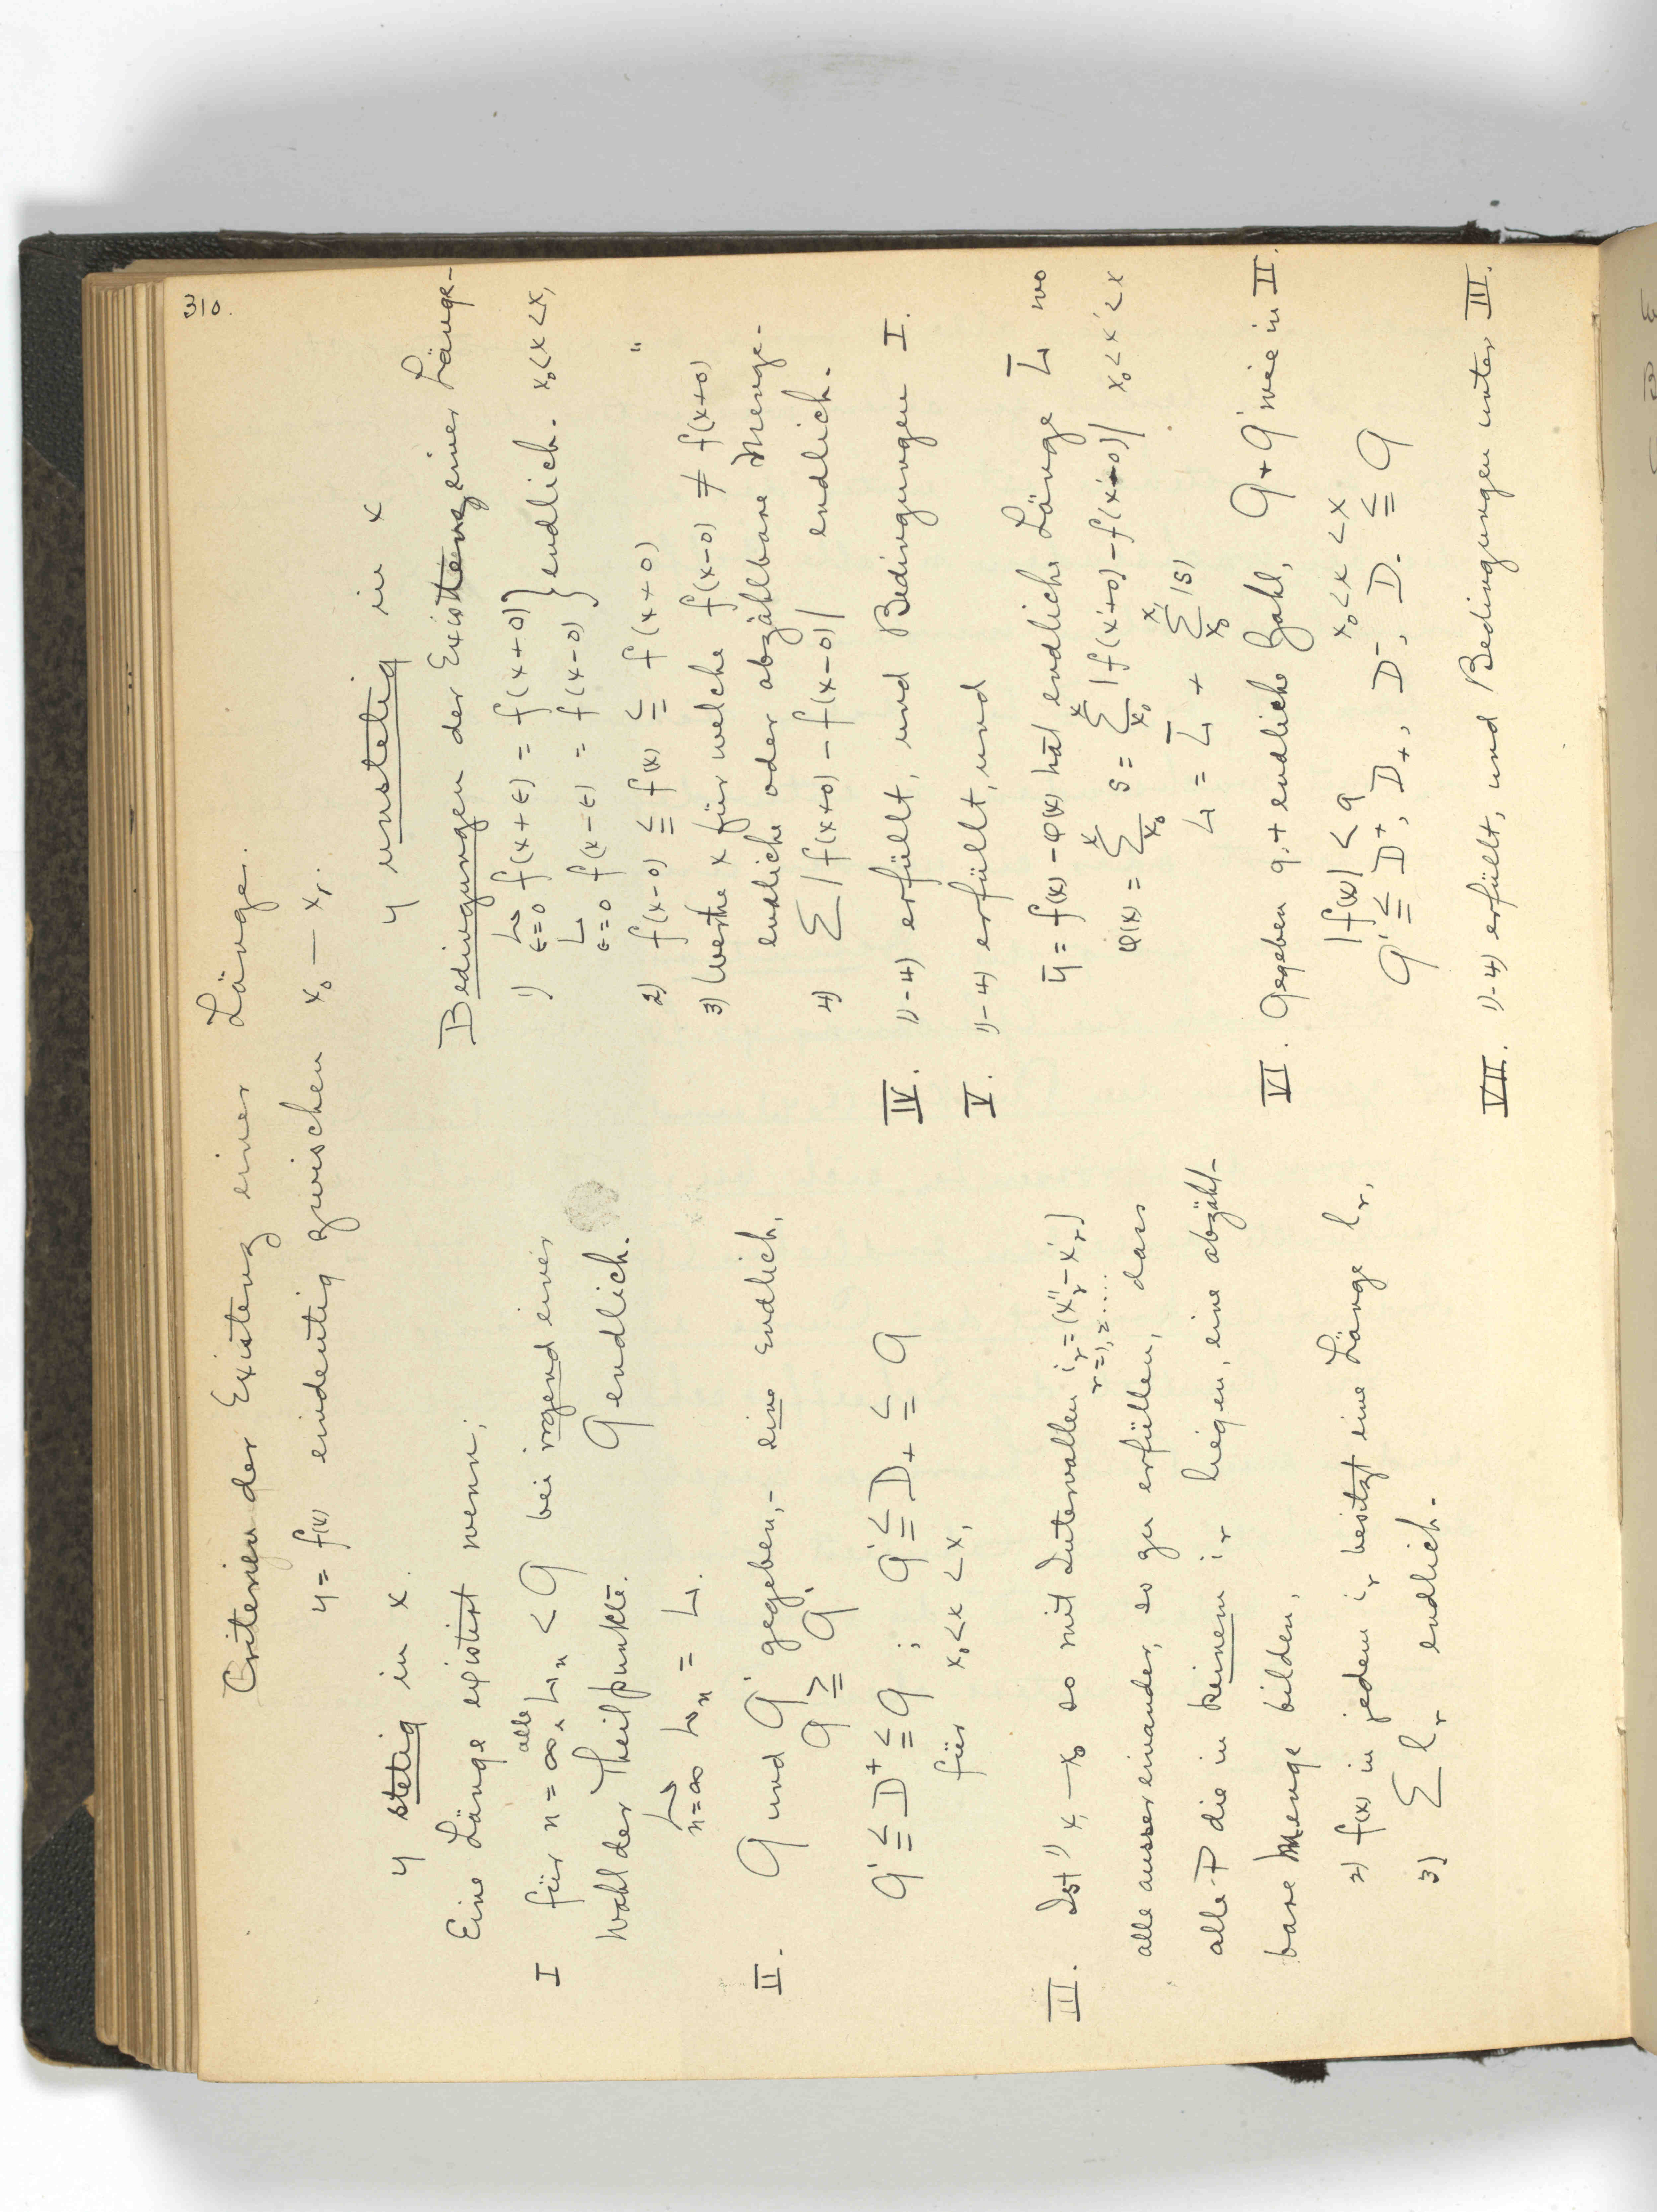 310.
Criterien der Existenz einer Länge.
y = f(x) eindeutig zwischen x₀ — x₁.
y stetig in x.
Eine Länge existirt wenn:
I für n = ∞, alle Lₙ < G bei irgend einer
Wahl der Theilpunkte. G endlich.
L n=∞ Lₙ = L.
II. G und G' gegeben, - eine endlich,
G ≧ G'
G' ≦ D⁺ ≦ G ; G' ≦ D₊ ≦ G
für x₀ < x < x₁
III. Ist 1) x₁ — x₀ so mit Intervallen iᵣ = (x''ᵣ — x'ᵣ)
r = 1, 2.....
alle aussereinander, so zu erfüllen, dass
alle P die in keinem iᵣ liegen, eine abzähl-
bare Menge bilden,
2) f(x) in jedem iᵣ besitzt eine Länge lᵣ,
3) Σ lᵣ endlich.
y unstetig in x
Bedingungen der Existenz einer Länge-
1) L ε=0 f(x + ε) = f(x + 0) } endlich. x₀ < x < x₁
L ε=0 f(x - ε) = f(x - 0)
2) f(x-0) ≦ f(x) ≦ f(x + 0) "
3) Werthe x für welche f(x-0) ≠ f(x+0)
endliche oder abzählbare Menge-
4) Σ |f(x+0) - f(x-0)| endlich.
IV. 1)-4) erfüllt, und Bedingungen I.
V. 1)-4) erfüllt, und
ȳ = f(x) - φ(x) hat endliche Länge L̄ wo
φ(x) = Σ s = Σ |f(x'+0) - f(x'-0)| x₀ < x' < x
L = L̄ + Σ |s|
VI. Gegeben g, + endliche Zahl, G + G' wie in II.
|f(x)| < g x₀ < x < x
G' ≦ D⁺, D₊, D⁻, D₋ ≦ G
VII. 1)-4) erfüllt, und Bedingungen unter III.